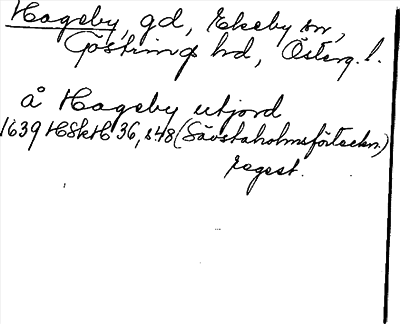 Hageby, gd, Ekeby sn,
Göstrings hd, Österg. l.
å Hageby utjord
1639 HSkH 36, s. 48 (Sävstaholmsförteckn.)
regest.